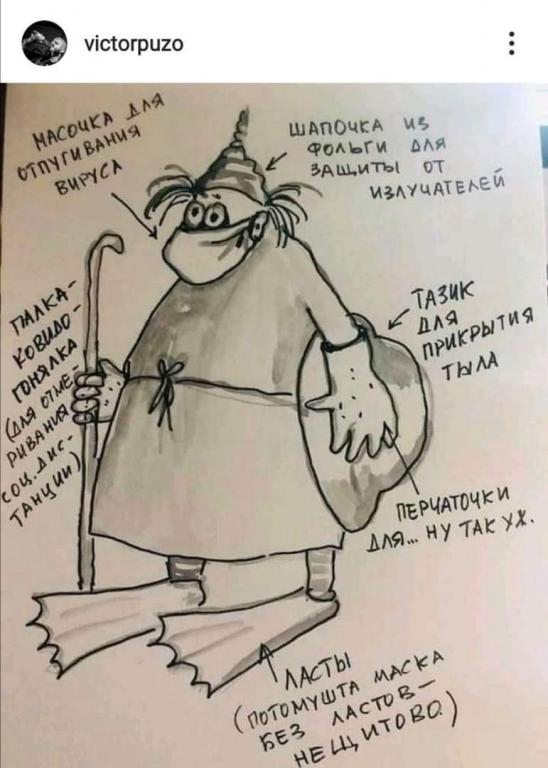 victorpuzo
МАСОЧКА ДЛЯ
ОТПУГИВАНИЯ
ВИРУСА
ШАПОЧКА ИЗ
ФОЛЬГИ ДЛЯ
ЗАЩИТЫ ОТ
ИЗЛУЧАТЕЛЕЙ
ТАЗИК
ДЛЯ
ПРИКРЫТИЯ
ТЫЛА
ПАЛКА-
КОВИДО-
ГОНЯЛКА
(ДЛЯ ОТМЕ-
РИВАНИЯ
СОЦ. ДИС-
ТАНЦИИ)
ПЕРЧАТОЧКИ
ДЛЯ... НУ ТАК УЖ.
ЛАСТЫ
(ПОТОМУШТА МАСКА
БЕЗ ЛАСТОВ-
НЕЩИТОВО.)